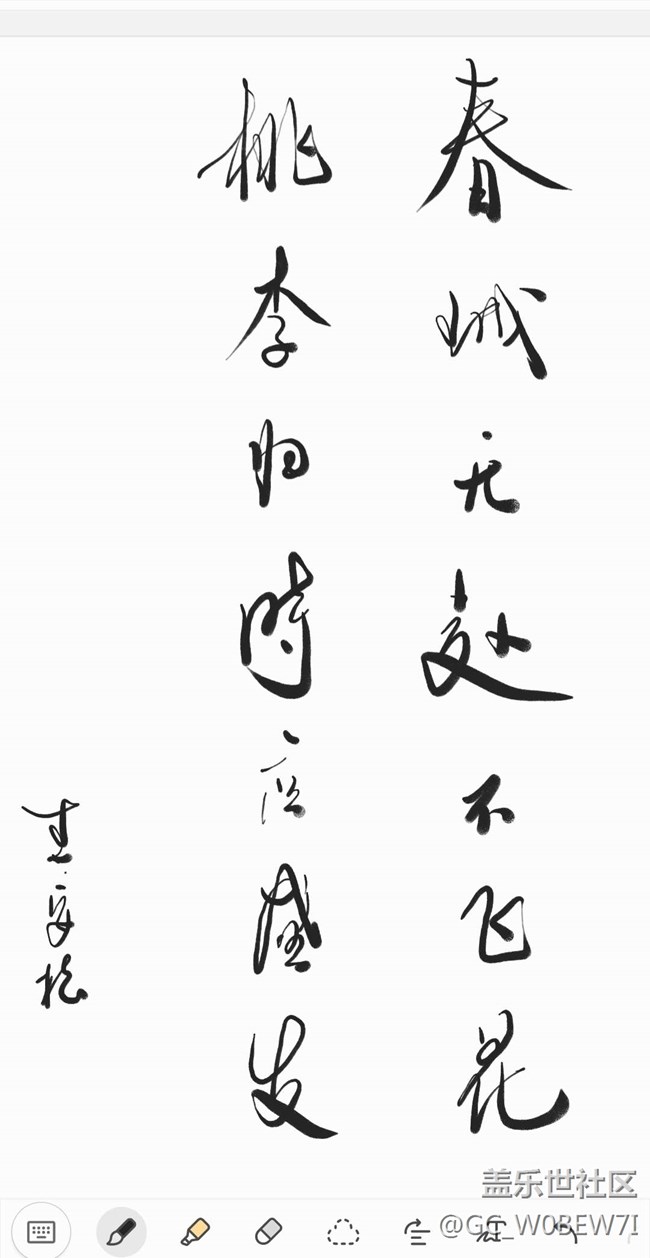 春城无处不飞花
桃李归时应盛发
盖乐世社区